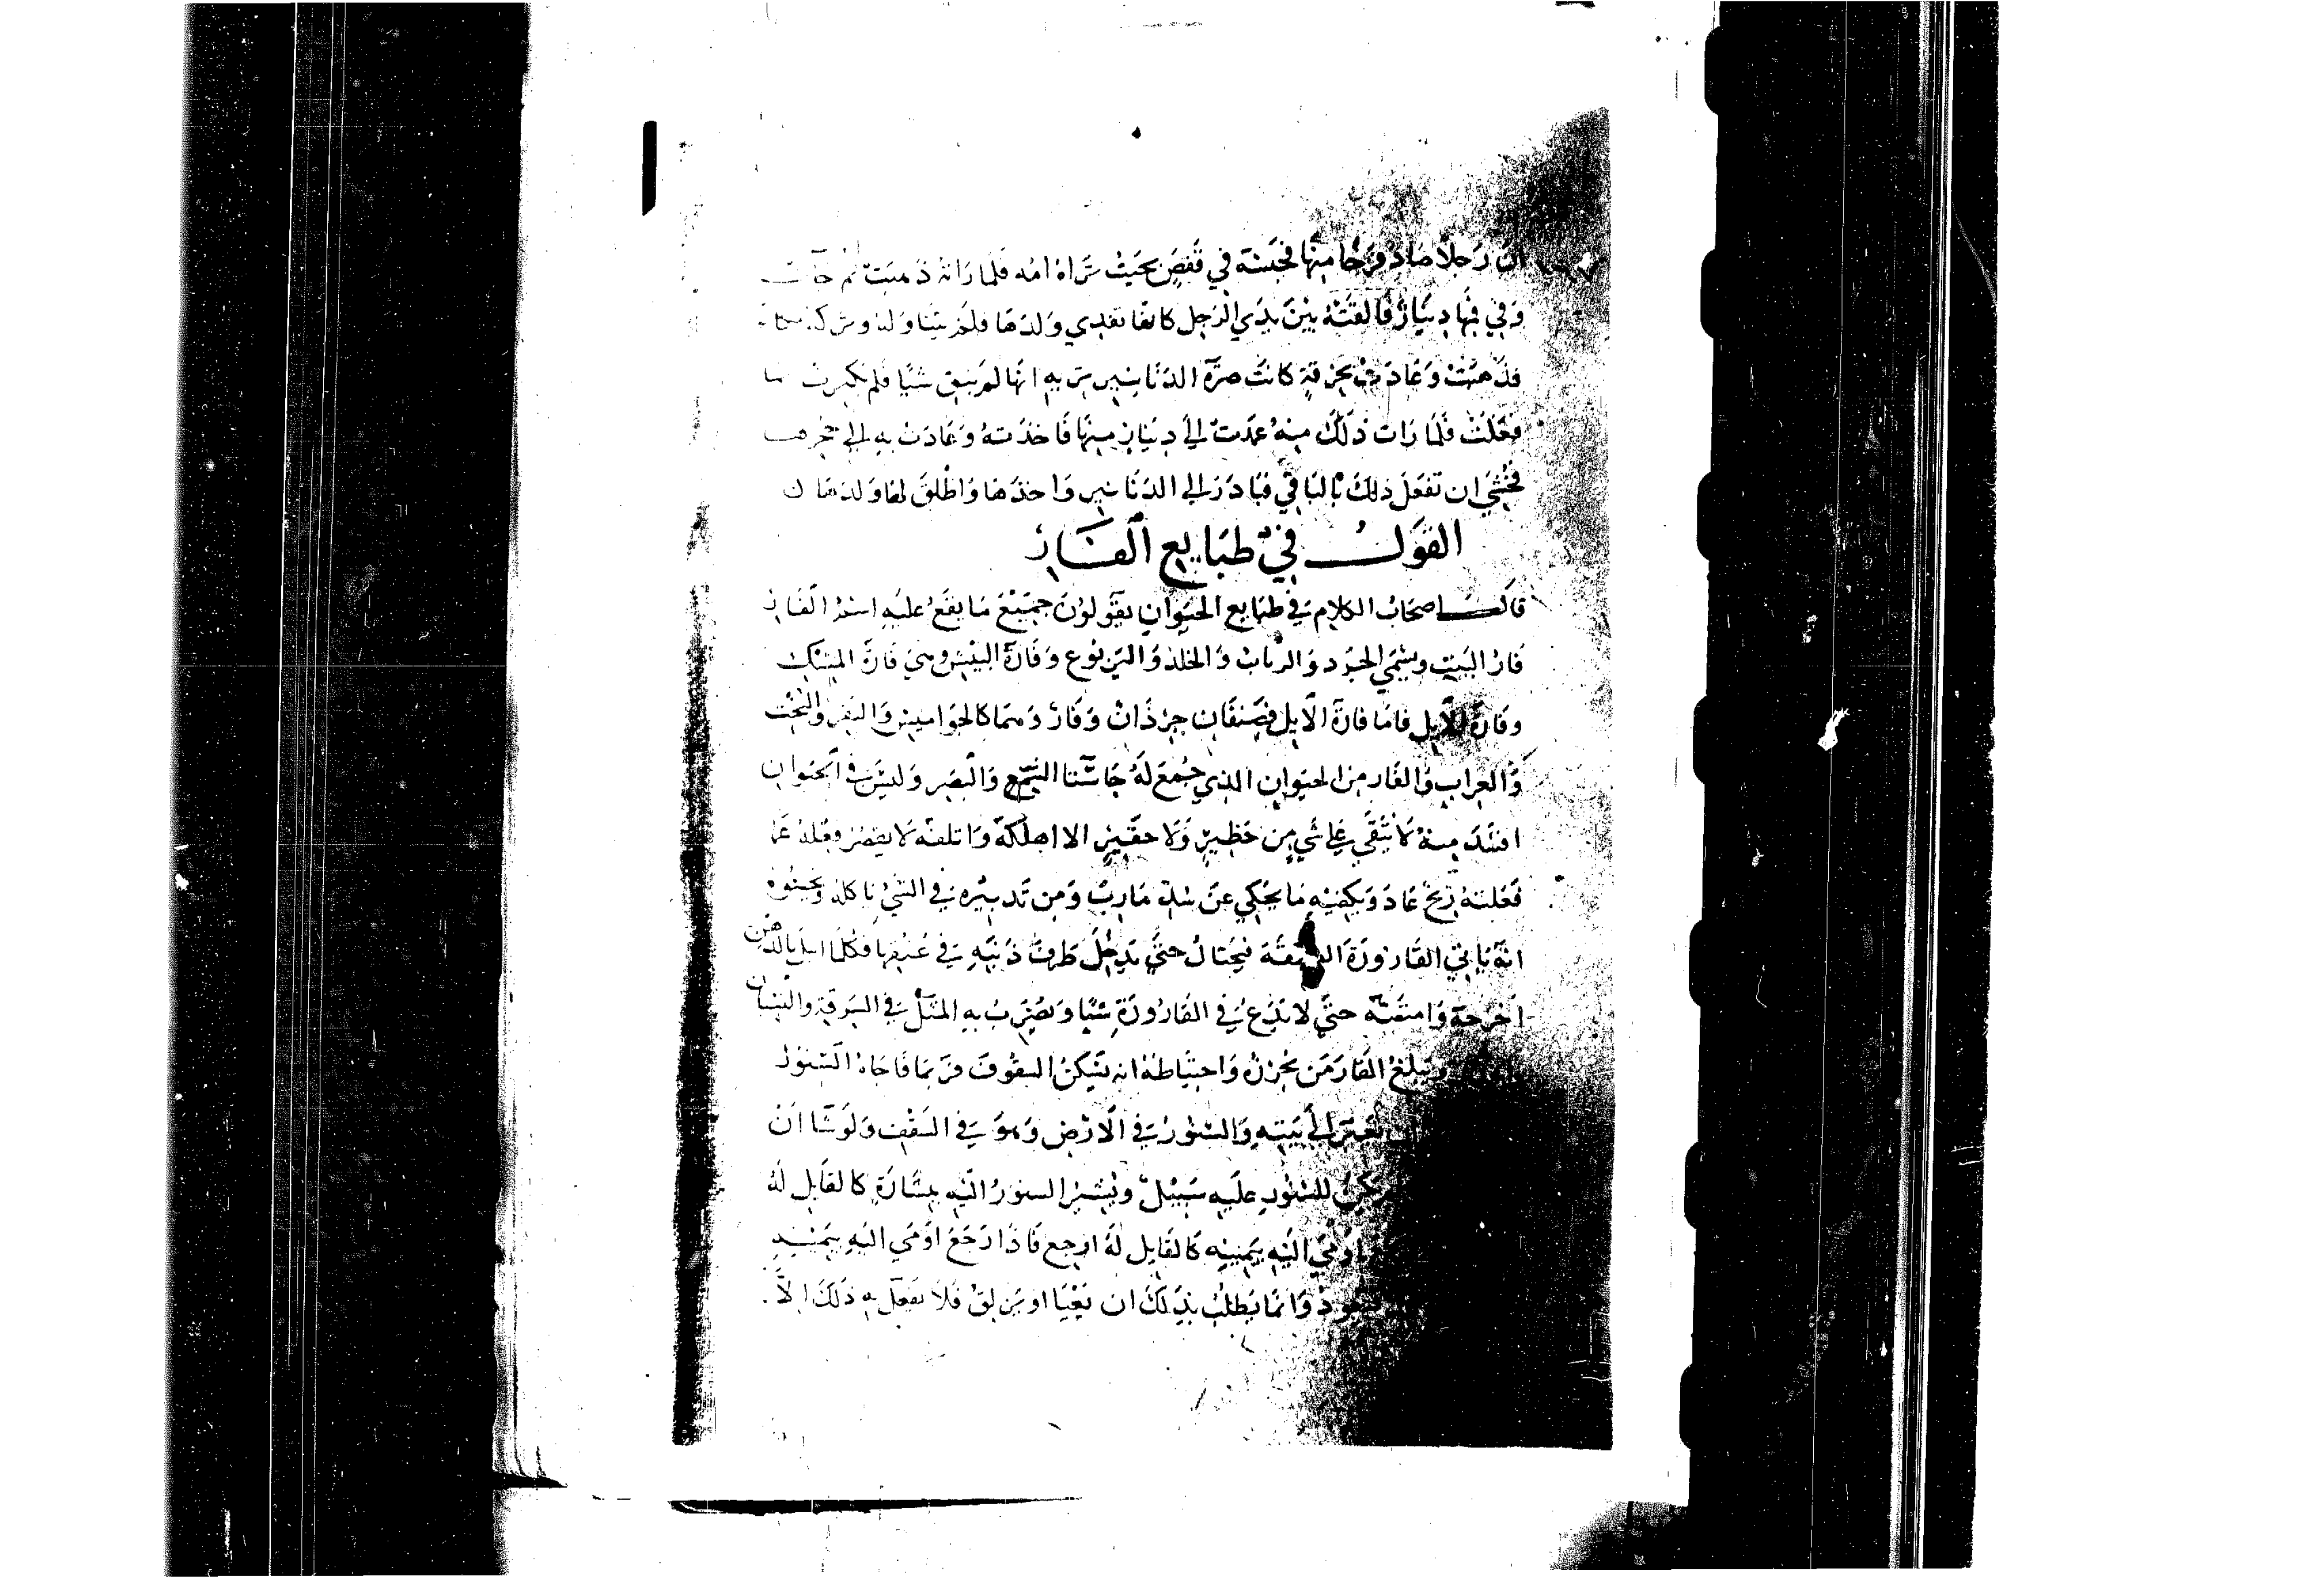 ان رجلا صاد فرخا منها فحبسه في قفص بحيث تراه امه فلما راته ذهبت ثم جات
وفي فيها دينار فالقته بين يدي الرجل كانها تفدي ولدها فلم يتناوله وتركه
فذهبت وعادت بخرقة كانت صرة الدنانير تريه انها لم يبق شيا فلم يكترث
فعلت فلما رات ذلك منه عمدت الى دينار منها فاخذته وعادت به الى جحرها
فخشي ان تفعل ذلك بالباقي فبادر الى الدنانير واخذها واطلق لها ولدها
القول في طبايع الفار
قال اصحاب الكلام في طبايع الحيوان يقولون جميع ما يقع عليه اسم الفار
فار البيت ويسمى الجرذ والزباب والخلد واليربوع وفارة البيش وهي فارة المسك
وفارة الابل فاما فارة الابل فصنفان جرذان وفار وهما كالجواميس والبقر والبخت
والعراب والفار من الحيوان الذي جمع له حاستا السمع والبصر وليس في الحيوان
افسد منه لا يبقي على شي من خطير ولا حقير الا اهلكه واتلفه لا يقصر فعله عما
فعلته ريح عاد ويكفيه ما يحكى عن سد مارب ومن تدبيره في الشي ياكله ويحسوه
انه ياتي القارورة الضيقة فيحتال حتى يدخل طرف ذنبه في عنقها فكلما ابتل بالدهن
اخرجه وامتصه حتى لا يدع في القارورة شيا ويضرب به المثل في السرقة والنسيان
ويبلغ الفار من تحرزه واحتياطه انه يسكن السقوف فربما فاجاه السنور
يعبر الى بيته والسنور في الارض وهو في السقف ولو شا ان
للسنور عليه سبيل ويشير السنور اليه بيساره كالقايل له
اومى اليه بيمينه كالقايل له ارجع فاذا رجع اومى اليه بيمينه
يعود وانما يطلب بذلك ان يعيا او يزلق فلا يفعل به ذلك الا